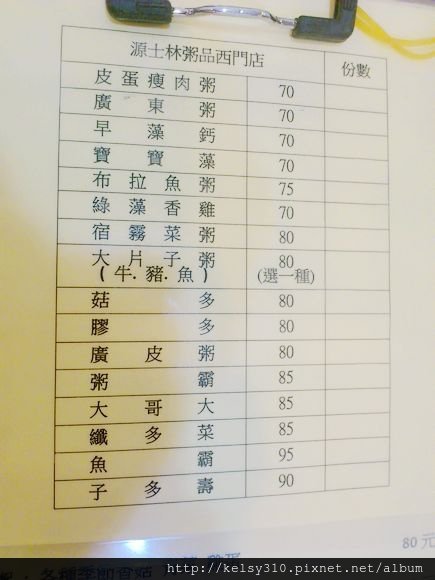 源士林粥品西門店 份數
皮蛋瘦肉粥 70
廣東粥 70
早藻鈣 70
寶寶藻 70
布拉魚粥 75
綠藻香雞 70
宿霧菜粥 80
大片子粥 80
(牛.豬.魚) (選一種)
菇多 80
膠多 80
廣皮粥 80
粥霸 85
大哥大 85
纖多菜 85
魚霸 95
子多壽 90
80元
http://kelsy310.pixnet.net/album